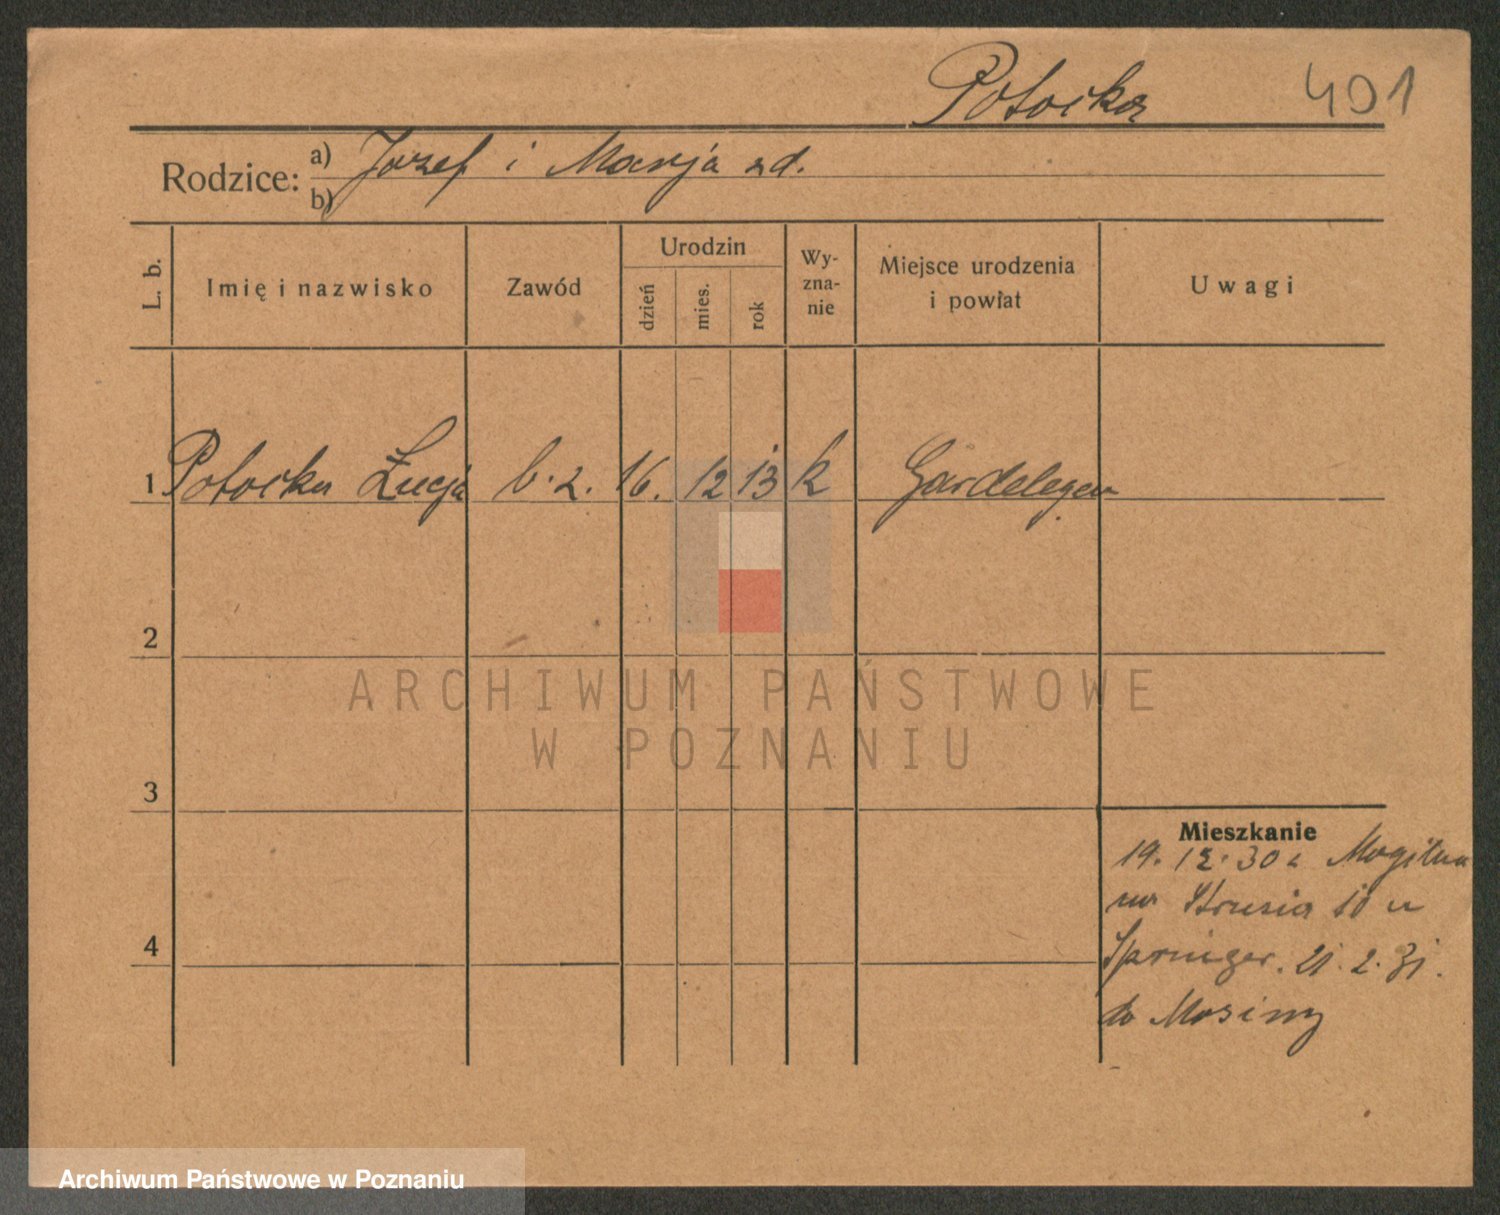 Potocka 401
Rodzice: a) Józef i Marja zd.
b)
L. b. Imię i nazwisko Zawód Urodzin dzień mies. rok Wy-zna-nie Miejsce urodzenia i powiat Uwagi
1 Potocka Łucja b. z. 16. 12 13 k Gardelegen
2
3
4
Mieszkanie
19. 12. 30 z Mogilna
na Strusia 10 u
Springer. 21. 2. 31.
do Mosiny
ARCHIWUM PAŃSTWOWE
W POZNANIU
Archiwum Państwowe w Poznaniu